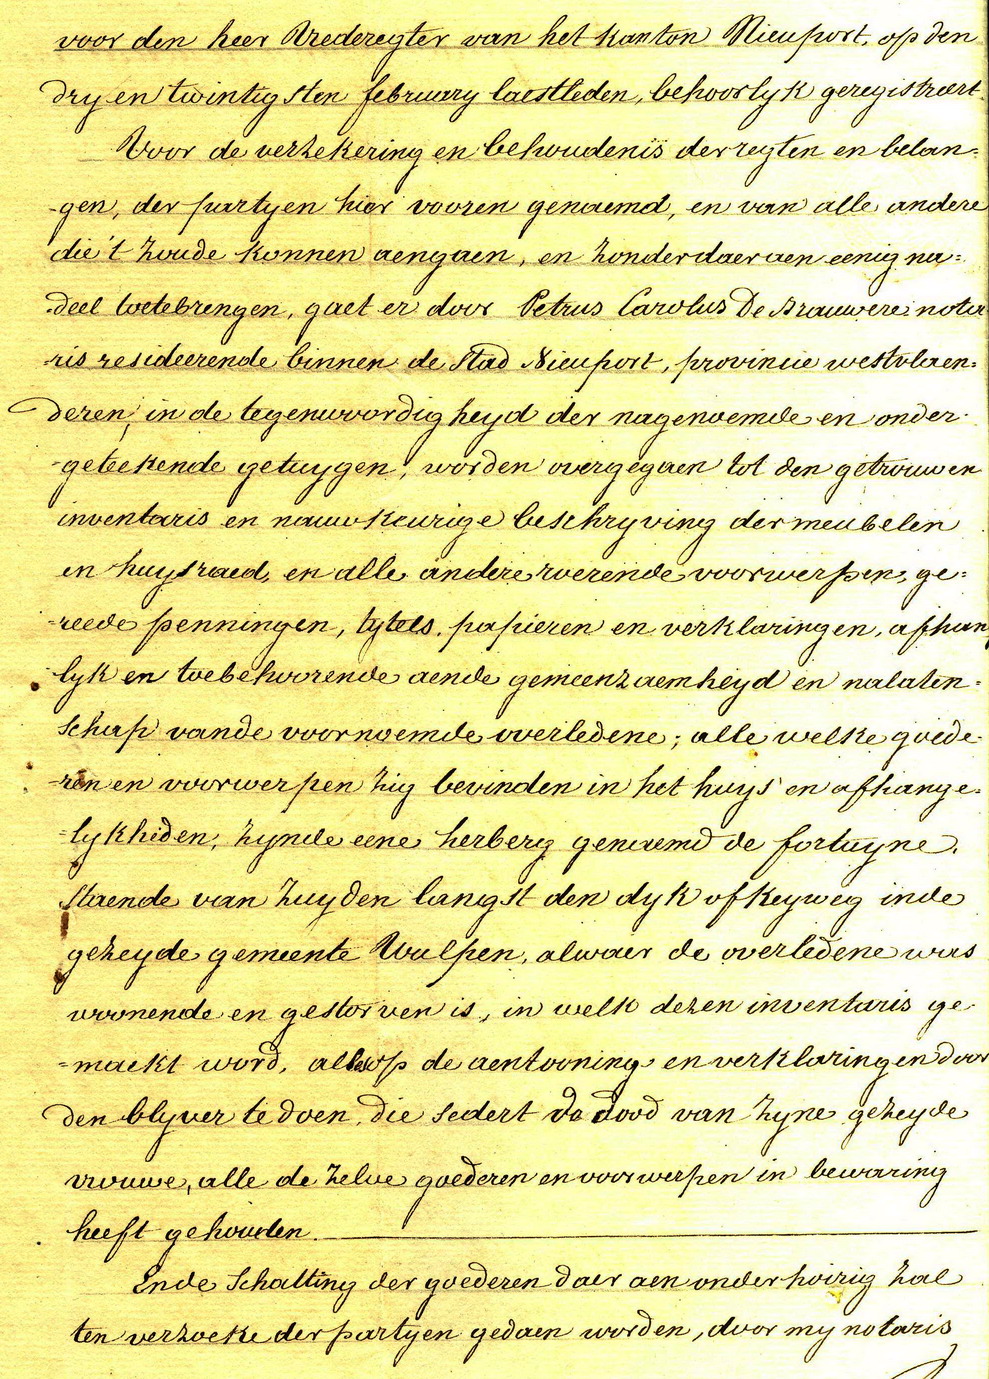 voor den heer Vrederegter van het kanton Nieuport, op den
dry en twintigsten february laestleden, behoorlyk geregistreert.
Voor de verzekering en behoudenis der regten en belan=
-gen, der partyen hier vooren genaemd, en van alle andere
die't zoude konnen aengaen, en zonder daer aen eenig na=
deel toetebrengen, gaet er door Petrus Carolus De Brauwere nota
ris resideerende binnen de Stad Nieuport, provincie westvlaen=
deren, in de tegenwoordigheyd der nagenoemde en onder-
-geteekende getuygen, worden overgegaen tot den getrouwen
inventaris en nauwkeurige beschryving der meubelen
en huysraed, en alle andere roerende voorwerpen, ge=
-reede penningen, tytels, papieren en verklaringen, afhan
lyk en toebehoorende aende gemeenzaemheyd en nalaten=
schap vande voornoemde overledene; alle welke goede-
-ren en voorwerpen zig bevinden in het huys en afhange=
=lykheden, zynde eene herberg genaemd de fortuyne,
staende van zuyden langst den dyk of keyweg inde
gezeyde gemeente Wulpen, alwaer de overledene was
woonende en gestorven is, in welk dezen inventaris ge-
=maekt word, alles op de aentooning en verklaringen door
den blyver te doen, die sedert de dood van zyne gezeyde
vrouwe, alle de zelve goederen en voorwerpen in bewaring
heeft gehouden.
Ende Schatting der goederen daer aen onderhoirig zal
ten verzoeke der partyen gedaen worden, door my notaris